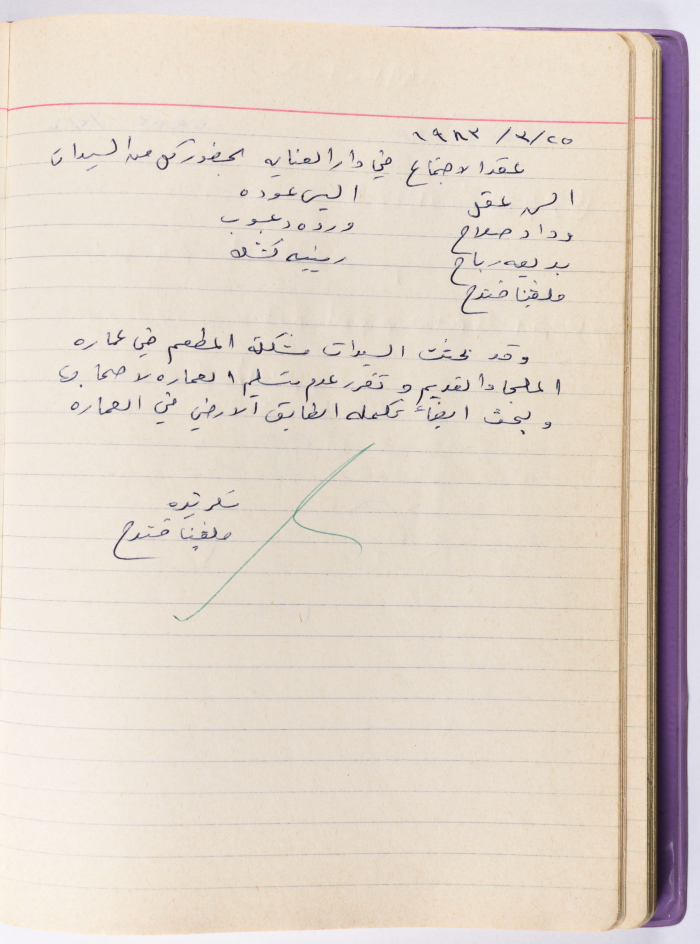 ١٩٨٣/٣/٢٥
عقد الاجتماع في دار العنايه بحضور كل من السيدات
السن عقل اليس عوده
وداد صلاح ورده دعبوب
بديعه رباح رينيه كشك
ملفينا قندح
وقد بحثت السيدات مشكلة المطعم في عماره
الملجاء القديم وتقرر عدم تسليم العماره لاصحابها
وبحث ايضاً تكمله الطابق الارضي في العماره
سكرتيره
ملفينا قندح